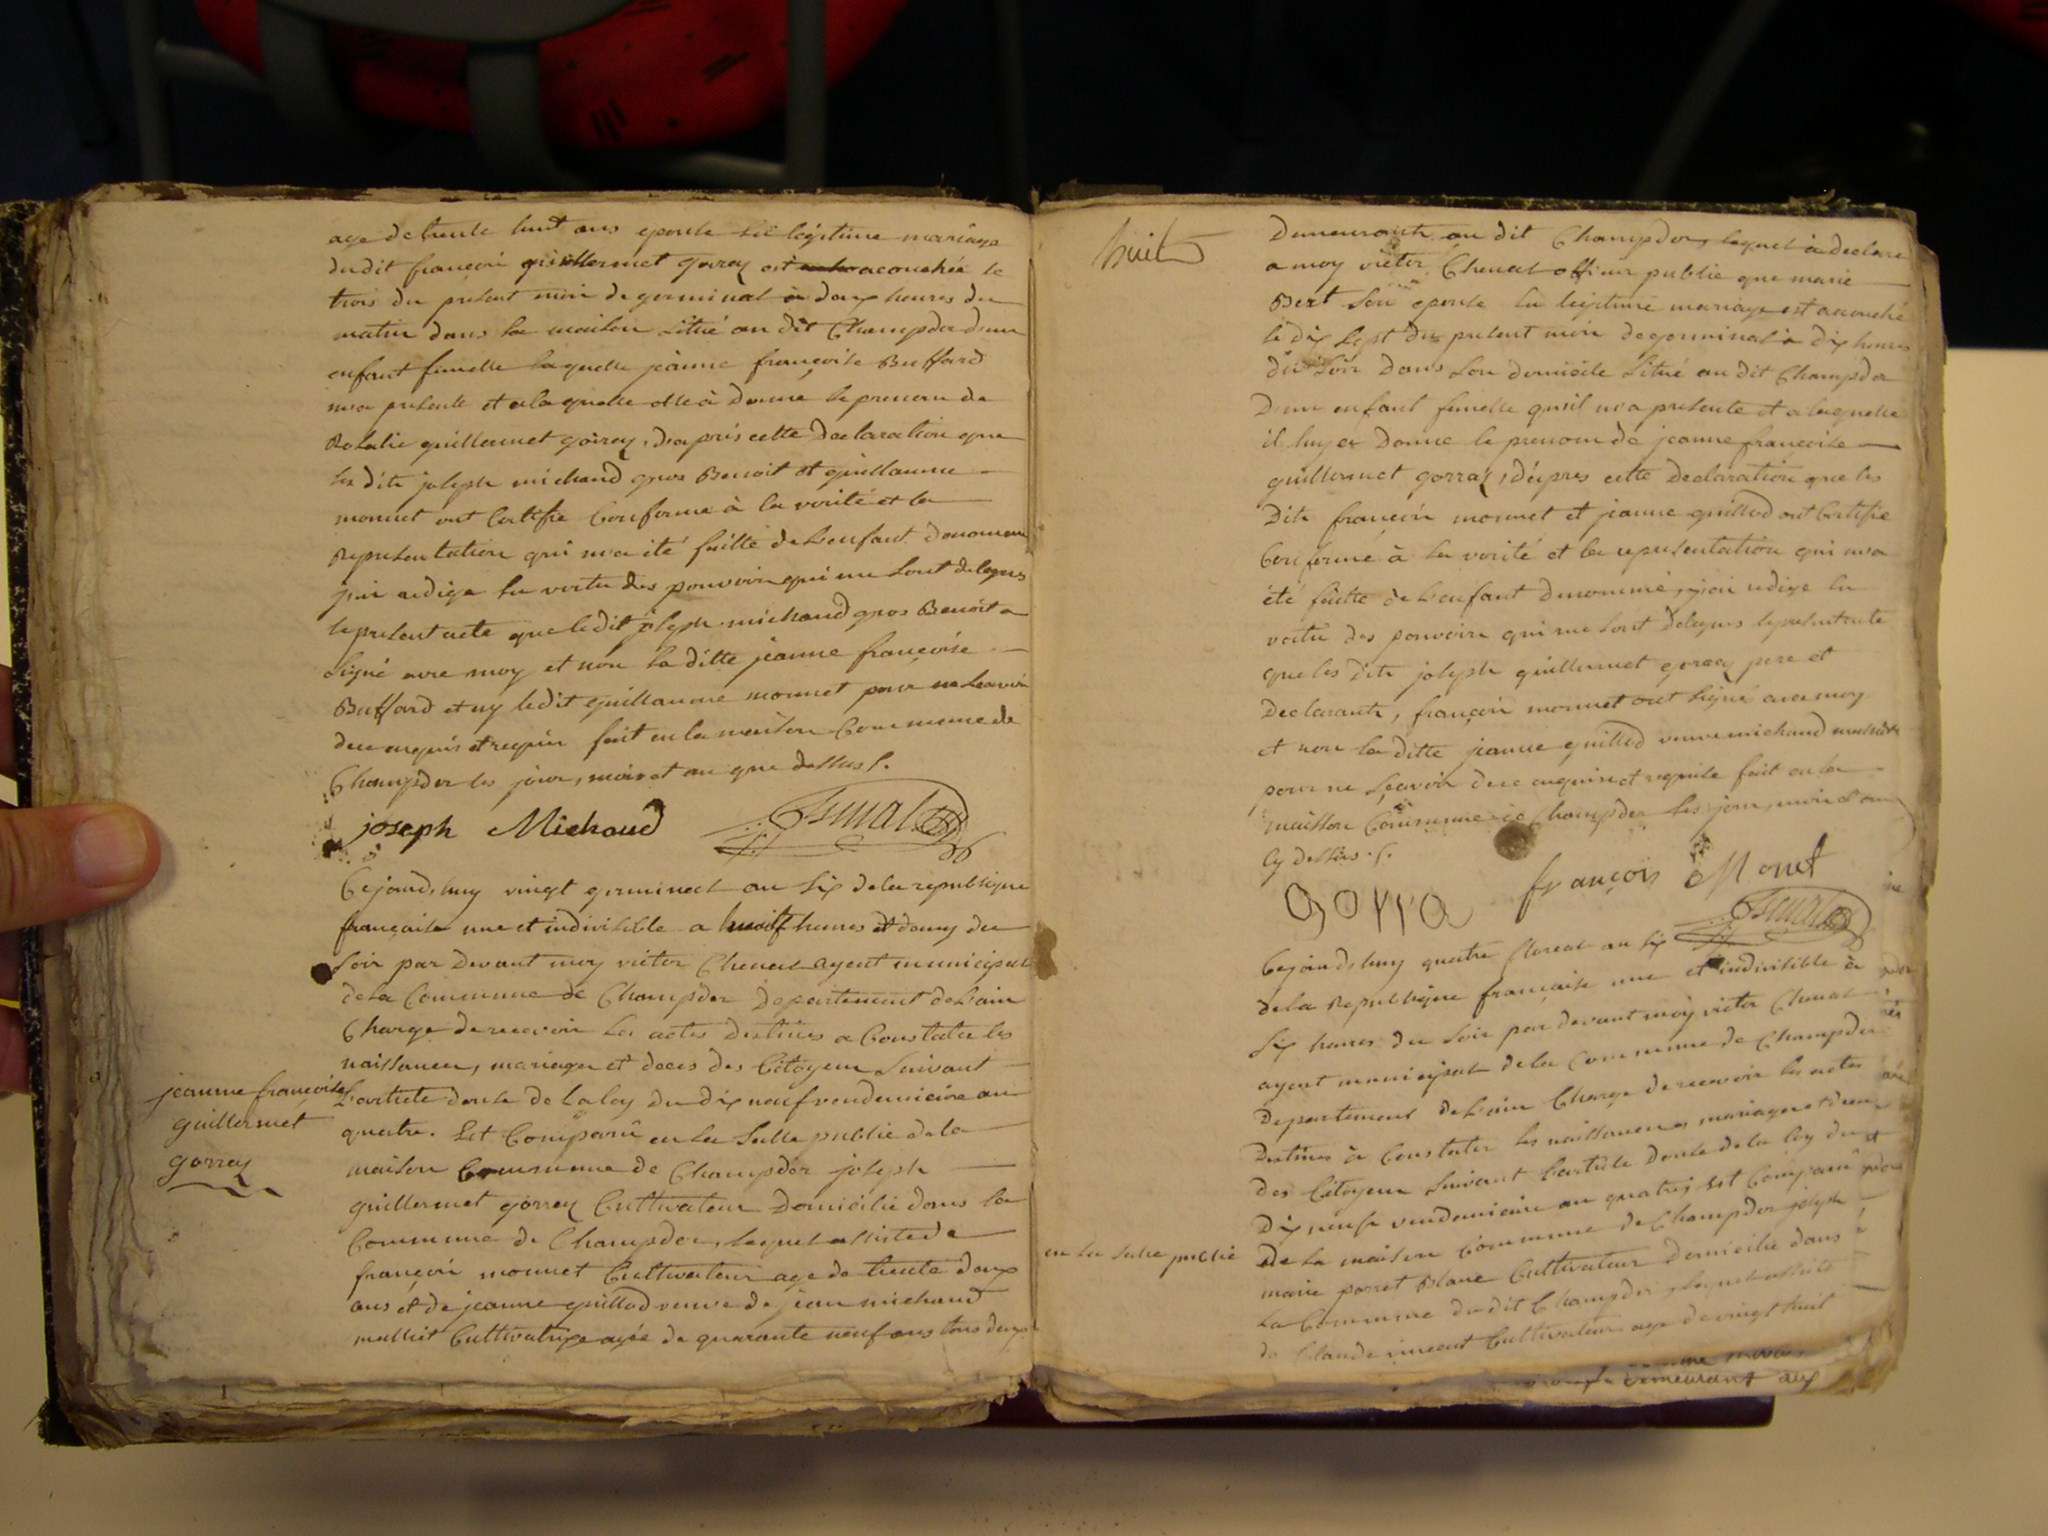 age de trente huit ans epouse en légitime mariage
du dit françois guillermet gorraz est acouchée le
trois du présent mois de germinal à deux heures du
matin dans sa maison situé au dit Champdor d'un
enfant femelle laquelle jeanne françoise Buffard
m'a presenté et a laquelle elle à donné le prenom de
Rosalie guillermet gorraz, d'après cette declaration que
les dits joseph michaud gros Benoit et guillaume
monnet ont certifié conforme à la verité et la
representation qui m'a été faitte de l'enfant denommé
j'ai redigé en vertu des pouvoirs qui me sont delegués
le present acte que le dit joseph michaud gros Benoit a
signé avec moy et non la ditte jeanne françoise
Buffard et ny le dit guillaume monnet pour ne scavoir
de ce enquis et requis fait en la maison commune de
Champdor les jour, mois et an que dessus
joseph Michaud
Cejourd'huy vingt germinal an six de la republique
française une et indivisible a huit heures et demy du
soir par devant moy victor Chenat agent municipal
de la Commune de Champdor Departement de l'ain
Chargé de recevoir les actes destinés a Constater les
naissances, mariages et deces des Citoyens suivant
jeanne françoise
guillermet
gorraz
l'article douse de la loy du dix neuf vendemiaire an
quatre. Est Comparû en la salle public de la
maison Commune de Champdor joseph
guillermet gorraz Cultivateur Domicilié dans la
Commune de Champdor, lequel assisté de
françois monnet Cultivateur agé de trente deux
ans et de jeanne guillod veuve de jean michaud
Cultivatrice agée de quarante neuf ans tous deux
huit
Demeurants au dit Champdor, lequel à declaré
a moy victor Chenat officier public que marie
Bert son epouse en legitime mariage est acouché
le dix sept du present mois de germinal à dix heures
du soir dans son domicile situé au dit Champdor
D'un enfant femelle qu'il m'a presenté et a laquelle
il luy a donné le prenom de jeanne françoise
guillermet gorraz, d'après cette declaration que les
Dits françois monnet et jeanne guillod ont certifié
Conforme à la verité et la representation qui m'a
été faitte de l'enfant denommé, j'ai redigé en
vertu des pouvoirs qui me sont delegués le present acte
que les dits joseph guillermet gorraz pere et
Declarant, françois monnet ont signé avec moy
et non la ditte jeanne guillod veuve michaud
pour ne sçavoir de ce enquise et requise fait en la
maison Commune de Champdor les jour, mois et an
cy dessus
gorra françois Monet
Cejourd'huy quatre floreal an six
de la Republique française une et indivisible à
six heures du soir par devant moy victor Chenat
agent municipal de la Commune de Champdor
Departement de l'ain Chargé de recevoir les actes
Destinés à Constater les naissances mariages et deces
des Citoyens suivant l'article douse de la loy du
Dix neuf vendemiaire an quatre, Est Comparû
en la salle public
De la maison Commune de Champdor joseph
marie perret Blanc Cultivateur domicilié dans
La Commune du dit Champdor, lequel assisté
de Claude vincent Cultivateur agé de vingt huit
demeurant aux